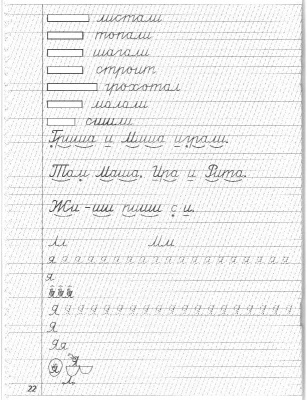 листали
топали
шагали
строит
грохотал
махали
сшили
Гриша и Миша играли.
Там Маша, Ира и Рита.
Жи -ши пиши с и.
Ии Ми
я я я я я я я я я я я я я я я я я я я
я
я я я
Я я я я я я я я я я я я я я я я я я
Я
Яя
я я
22